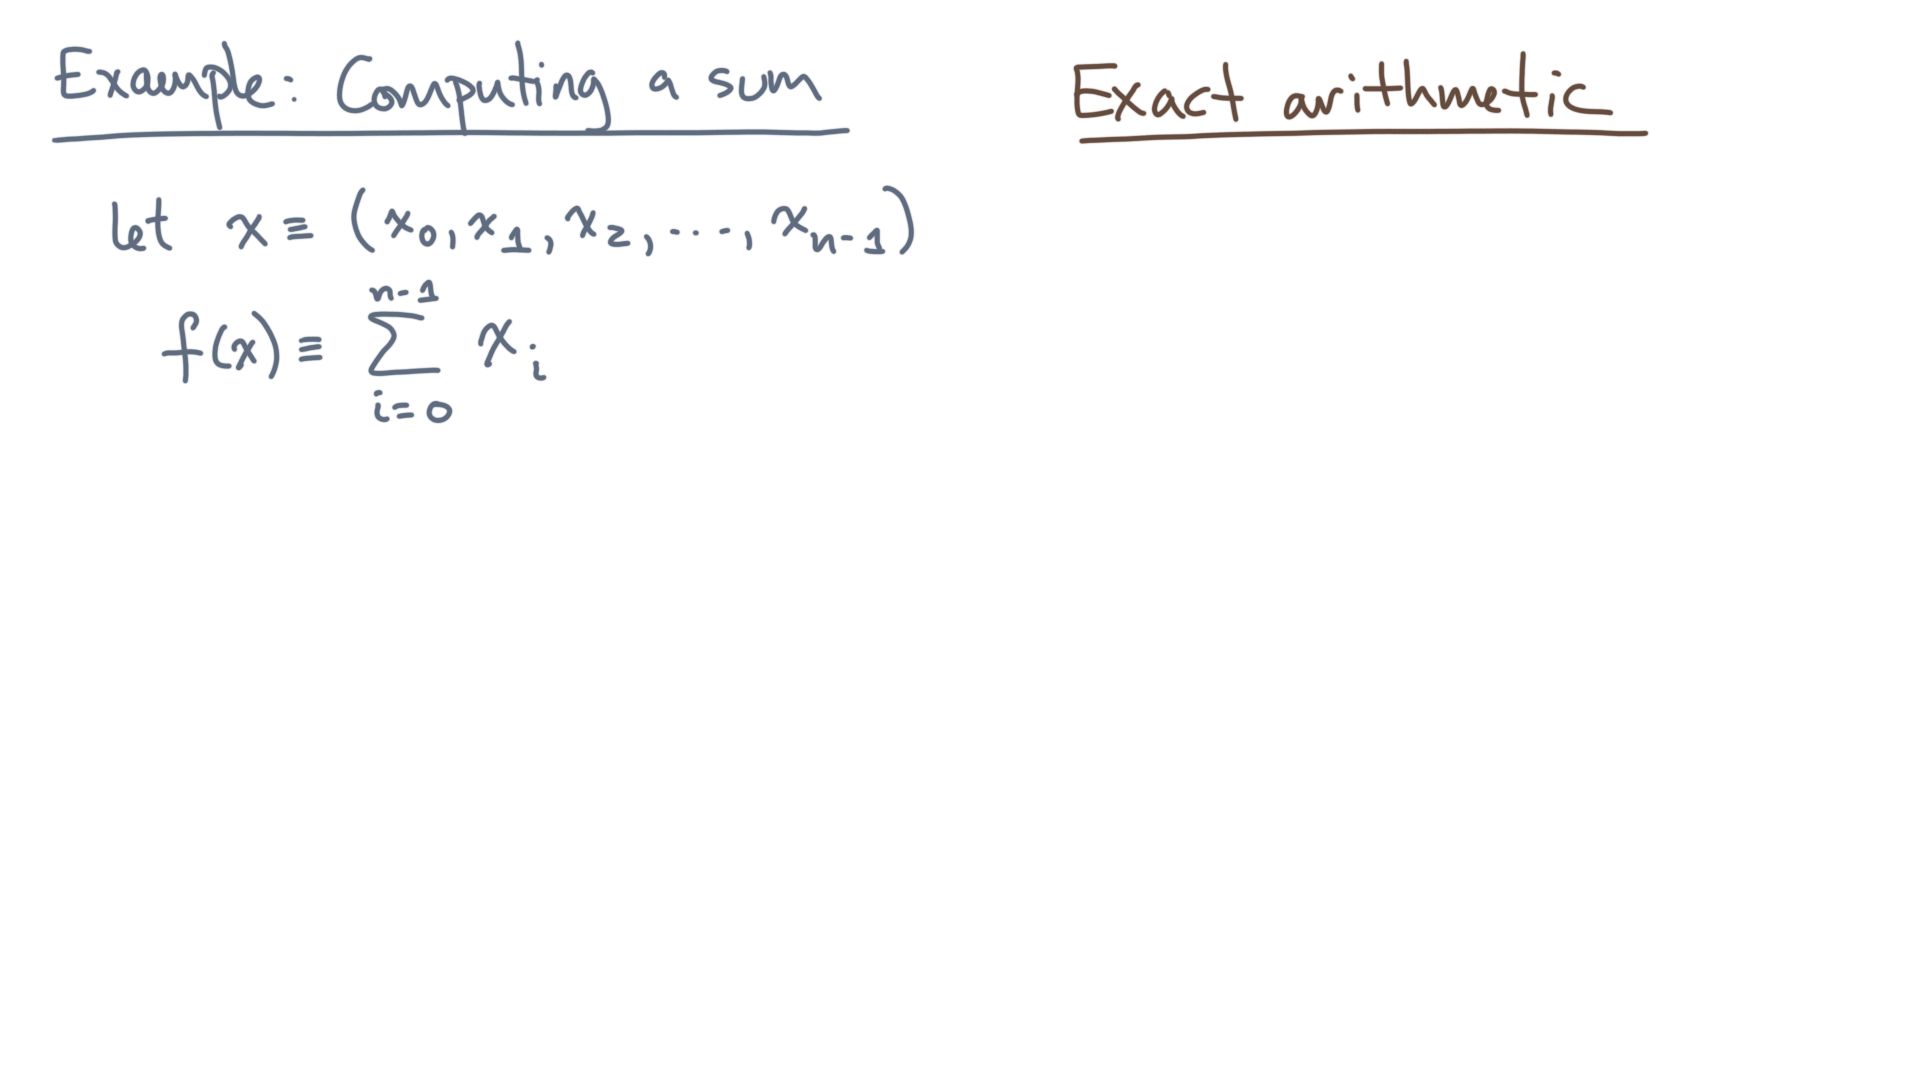 Example: Computing a sum
let x ≡ (x₀, x₁, x₂, ..., xₙ₋₁)
f(x) ≡ ∑ᵢ₌₀ⁿ⁻¹ xᵢ
Exact arithmetic